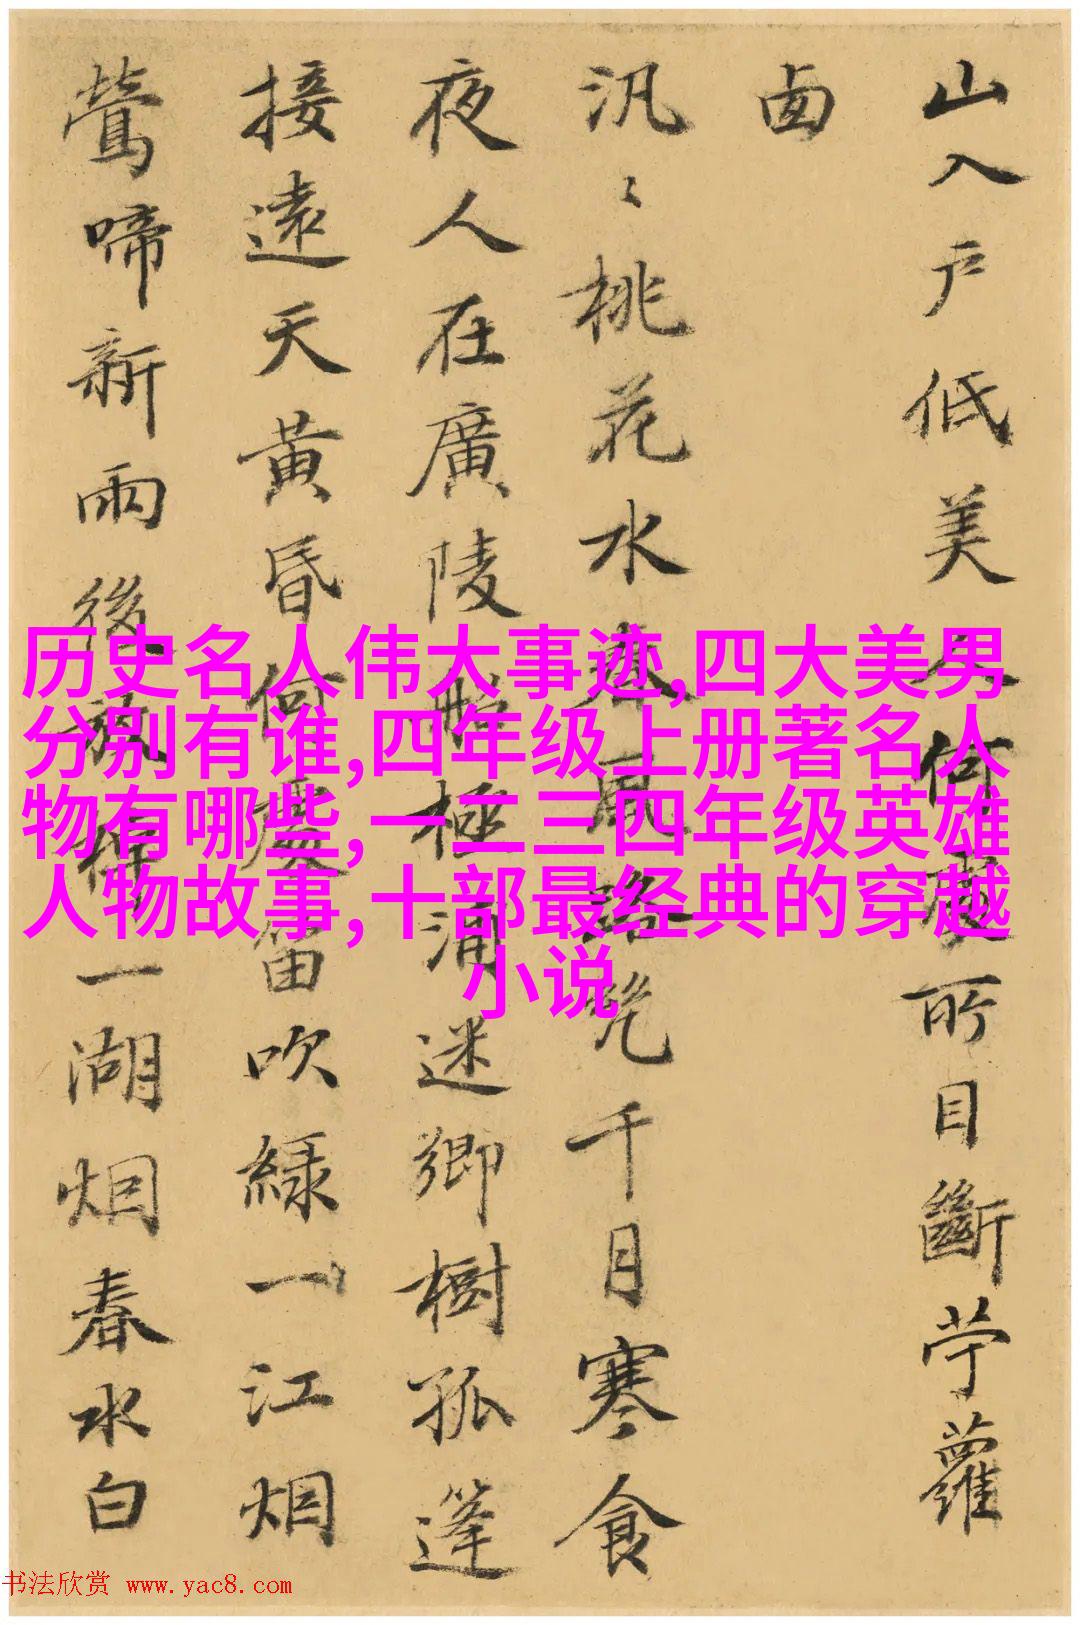 山入戶低美人何處所目斷苧蘿
汎〻桃花水春風路千月寒食
夜人在廣陵船極浦迷鄉樹孤篷
接遠天黃昏何處笛吹綠一江烟
鶯啼新雨後一湖烟春水白
历史名人伟大事迹,四大美男
分别有谁,四年级上册著名人
物有哪些,一二三四年级英雄
人物故事,十部最经典的穿越
小说
书法欣赏 www.yac8.com